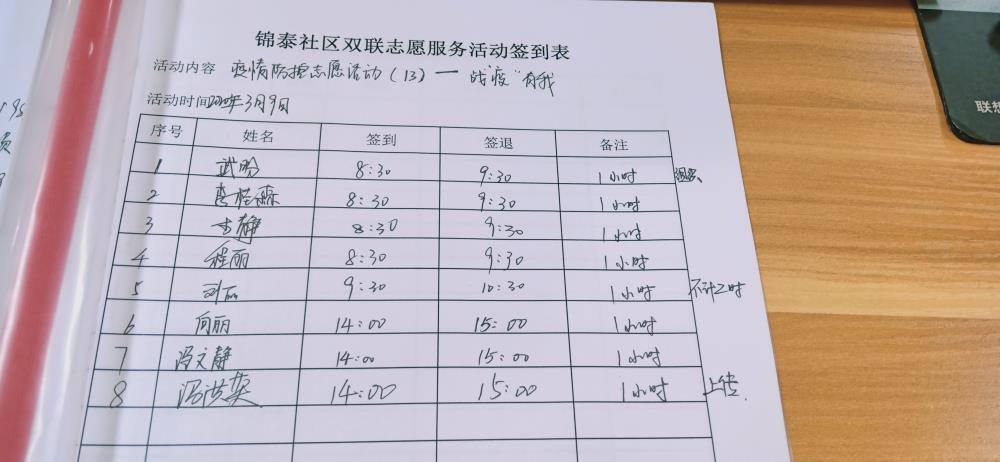 锦泰社区双联志愿服务活动签到表
活动内容 疫情防控志愿活动（13）一 战"疫"有我
活动时间 2020年3月9日
序号 姓名 签到 签退 备注
1 武 8:30 9:30 1小时
2 李桂森 8:30 9:30 1小时
3 李静 8:30 9:30 1小时
4 程丽 8:30 9:30 1小时
5 刘丽 9:30 10:30 1小时 不计工时
6 向丽 14:00 15:00 1小时
7 冯文静 14:00 15:00 1小时
8 冯洪英 14:00 15:00 1小时 上传.
联想
95